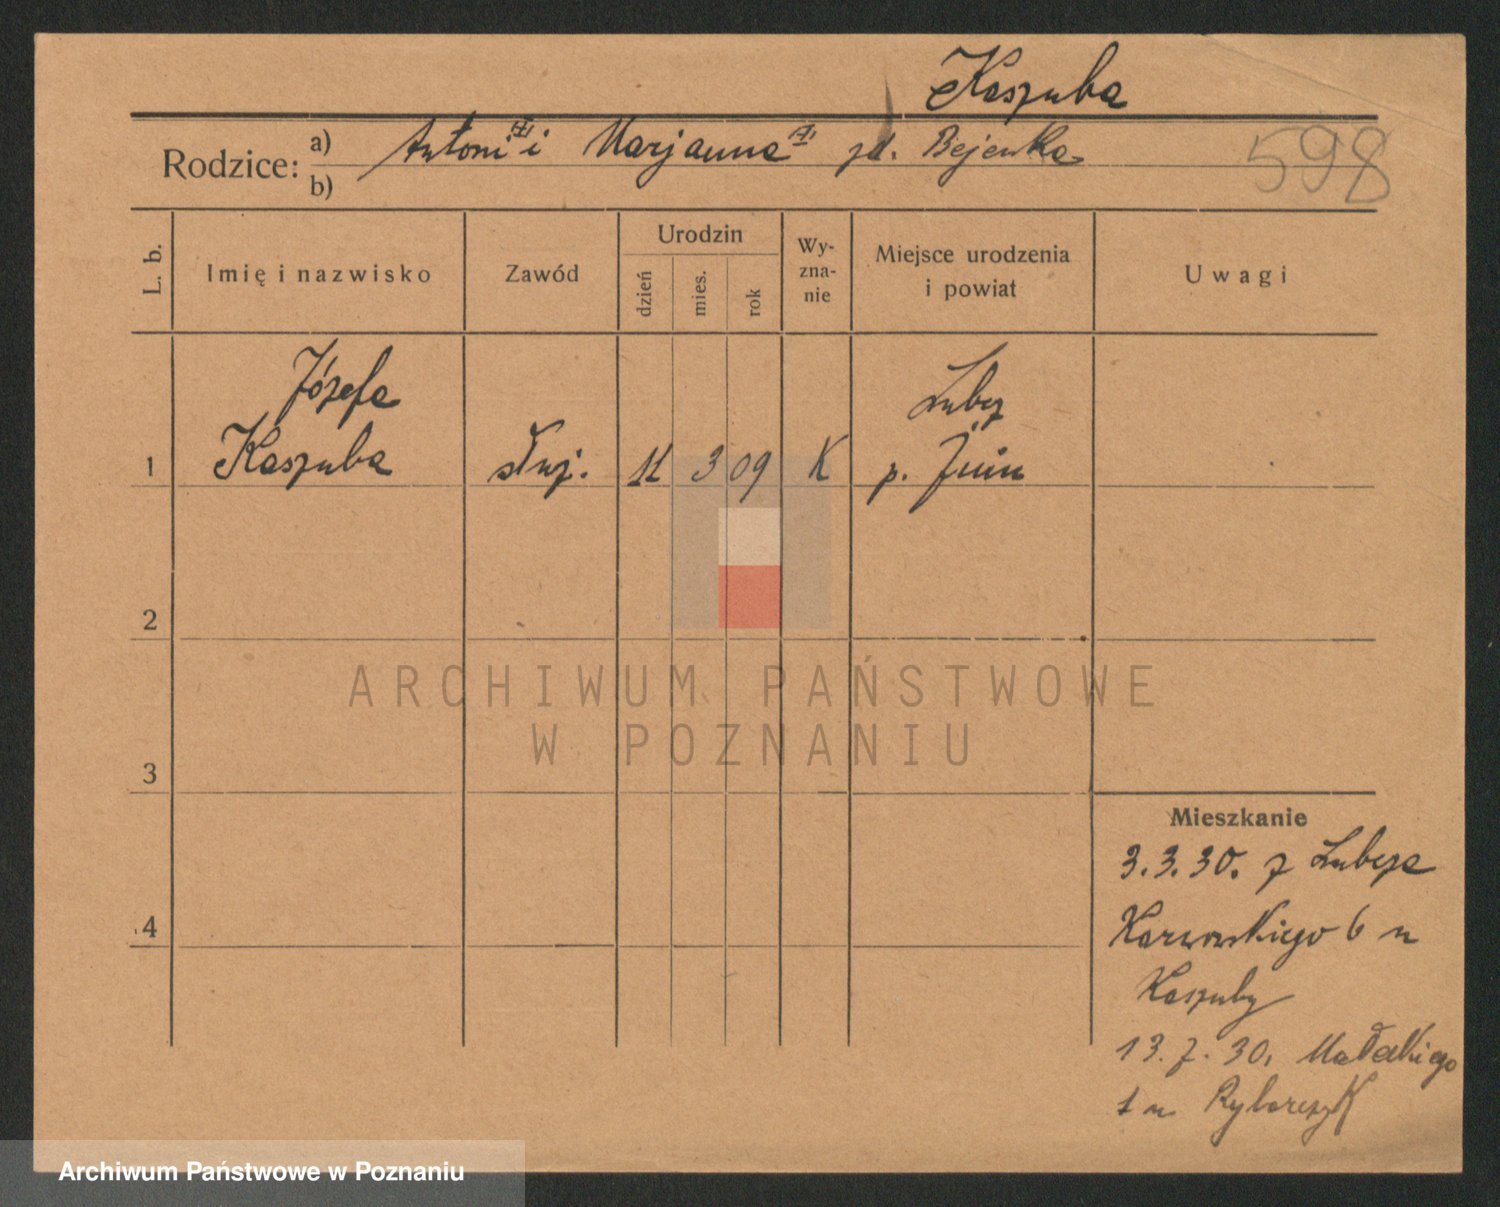 Kaszuba
Rodzice: a) Antoni i Marjanna zd. Bejenka
b)
598
L. b. Imię i nazwisko Zawód Urodzin dzień mies. rok Wy-zna-nie Miejsce urodzenia i powiat Uwagi
Józefa Lubcz
1 Kaszuba służ. 11 3 09 K p. Żnin
2
3
4
Mieszkanie
3.3.30. z Lubcza
Karwowskiego 6 u
Kaszuby
13.7.30. Małeckiego
1 u Rybarczyk
ARCHIWUM PAŃSTWOWE
W POZNANIU
Archiwum Państwowe w Poznaniu